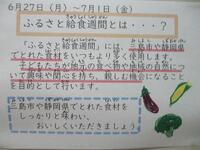 6月27日(月)~7月1日(金)
ふるさと給食週間とは・・・?
「ふるさと給食週間」には、三島市や静岡県
でとれた食材をいつもより多く使用します。
子どもたちが地元の食べ物や地域の自然に
ついて興味や関心を持ち、親しむ機会になること
を目的として行います。
三島市や静岡県でとれた食材を
しっかりと味わい、
おいしくいただきましょう